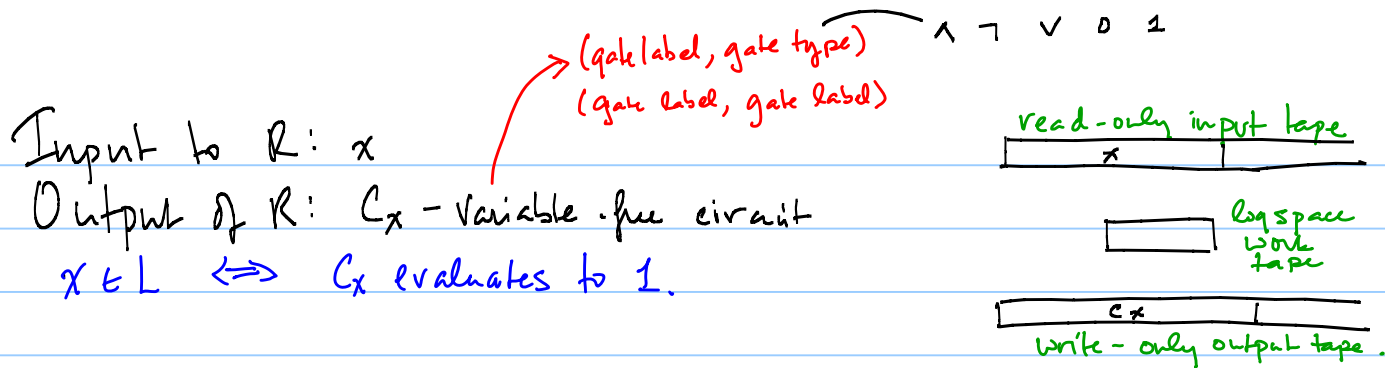 (gate label, gate type) ∧ ¬ ∨ 0 1
(gate label, gate label)
Input to R: x
Output of R: Cx - variable-free circuit
x ∈ L ⟺ Cx evaluates to 1.
read-only input tape
x
logspace
work
tape
Cx
write-only output tape.